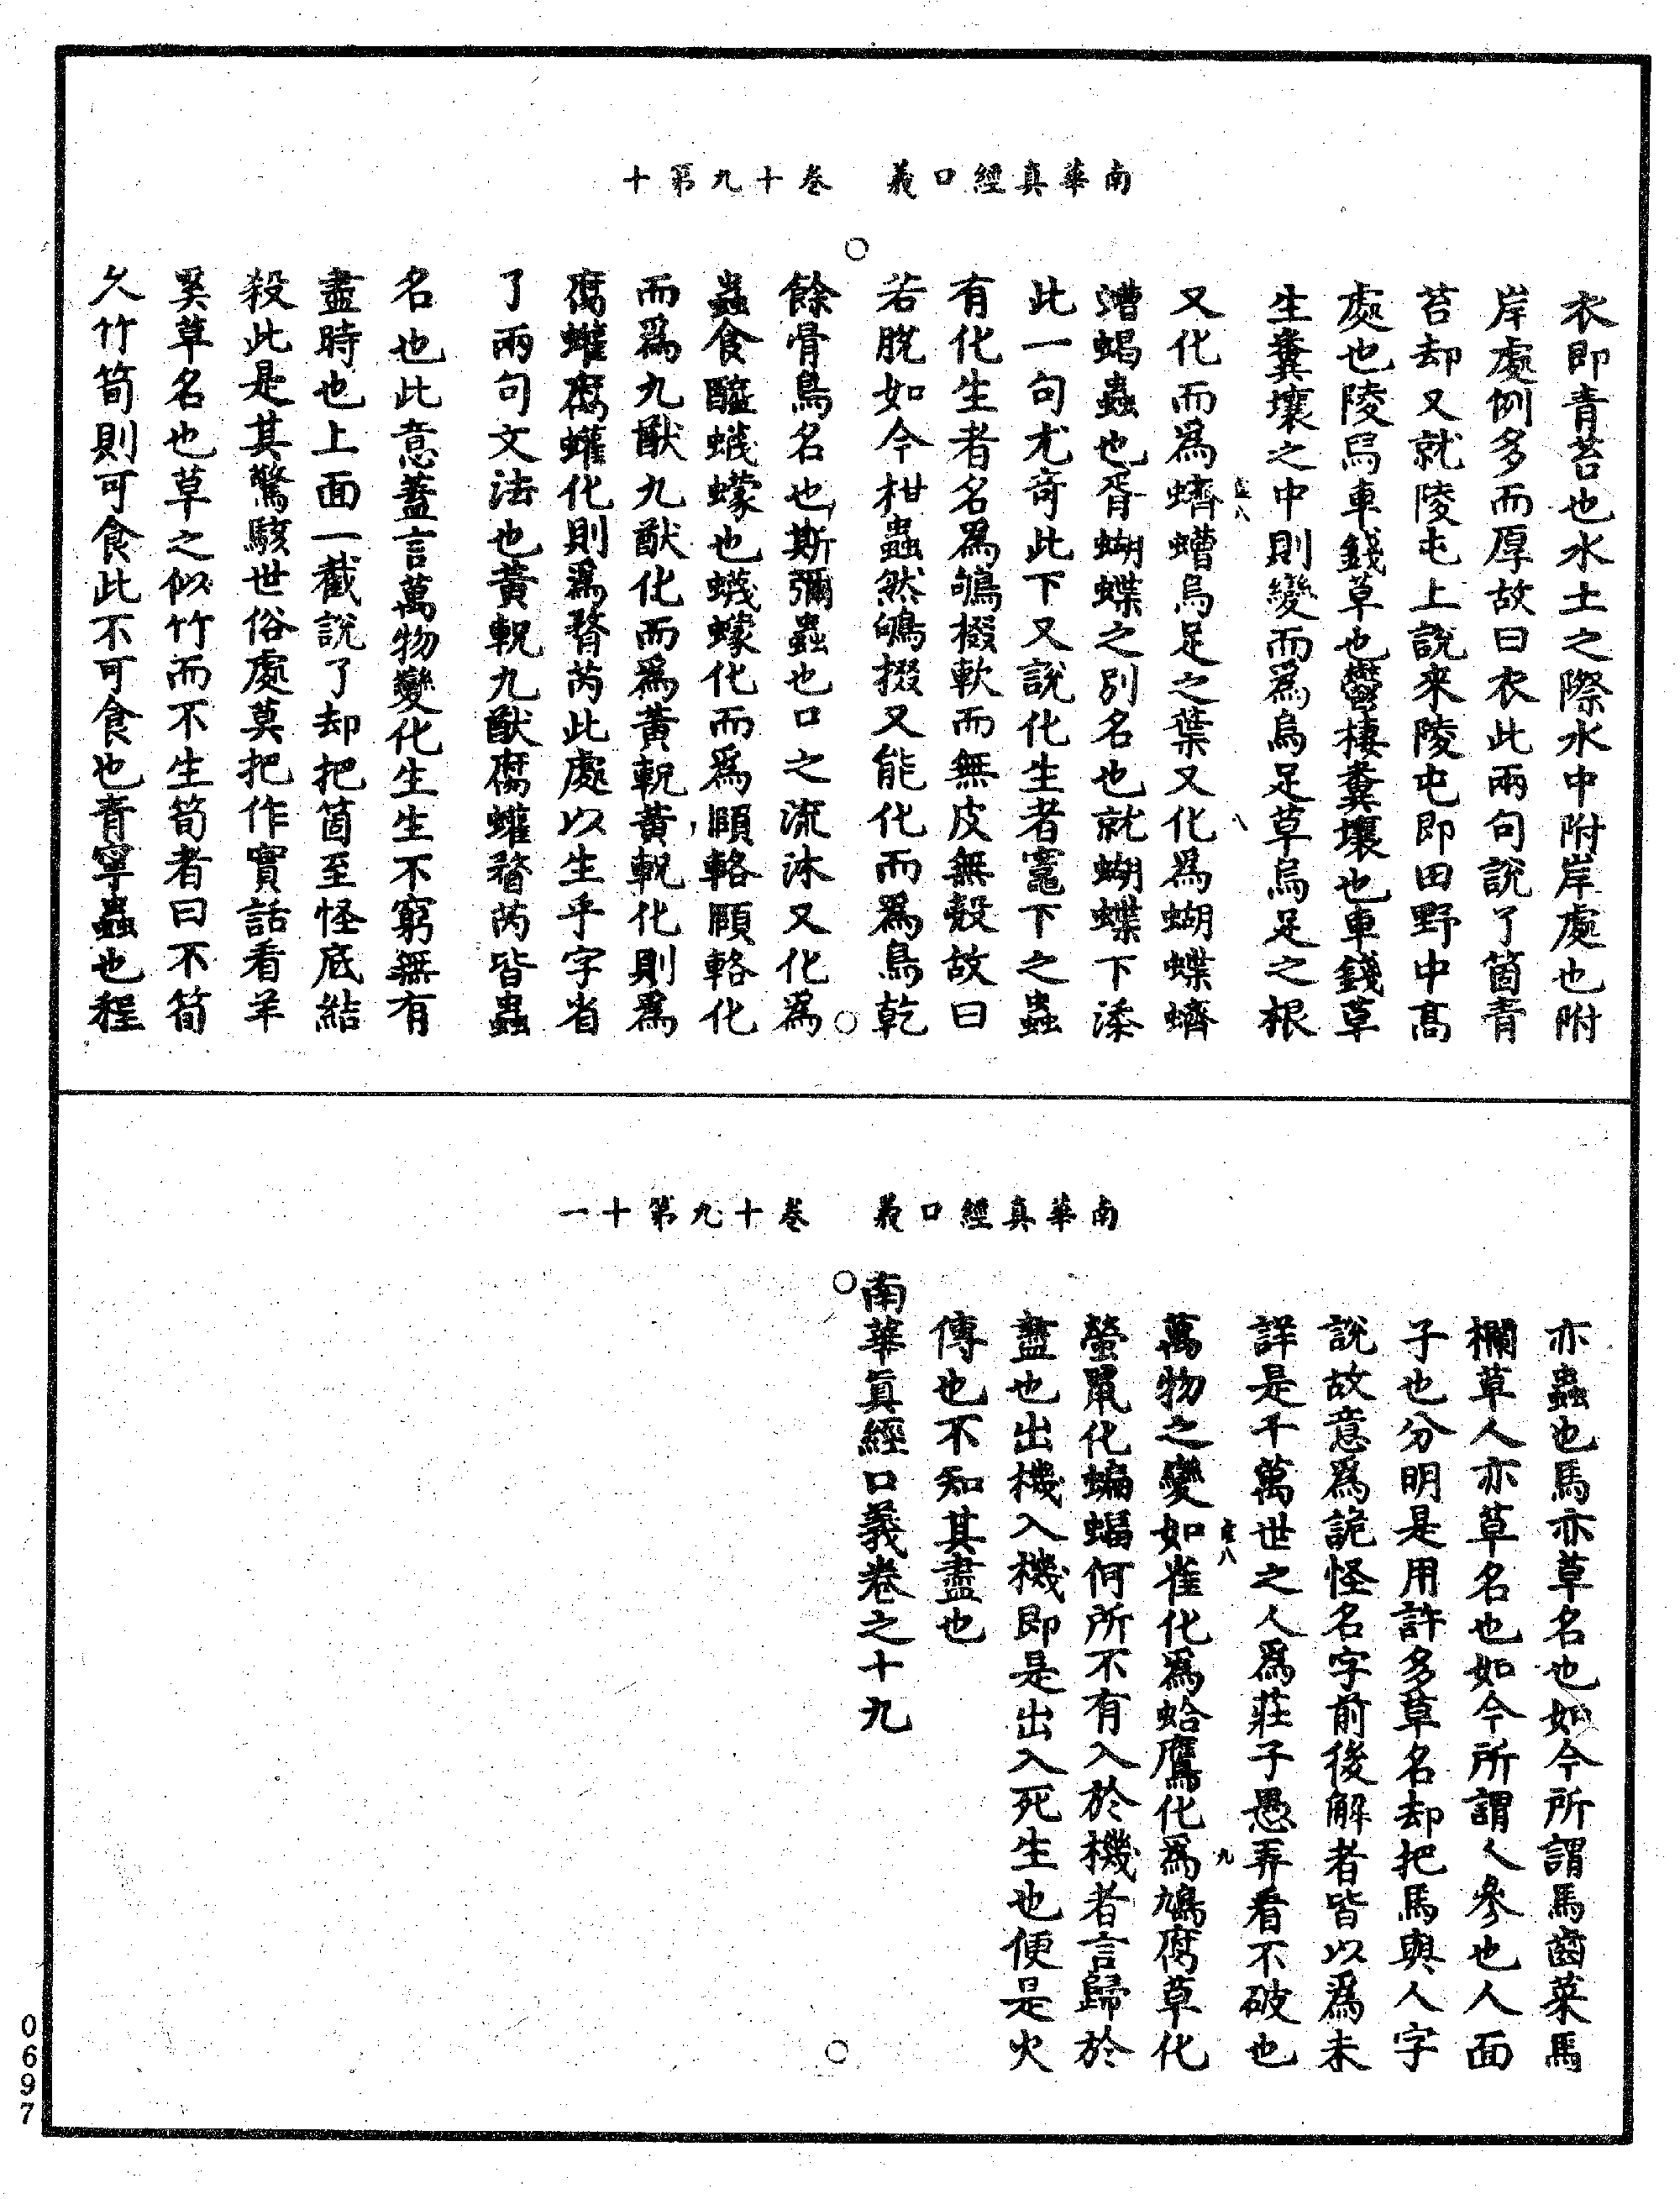 南華真經口義　卷十九第十
衣即青苔也水土之際水中附岸處也附
岸處例多而厚故曰衣此兩句說了箇青
苔却又就陵屯上說来陵屯即田野中高
處也陵舄車錢草也鬱棲糞壤也車錢草
生糞壤之中則變而為烏足草烏足之根
又化而為蠐螬烏足之葉又化為蝴蝶蠐
螬蝎蟲也胥蝴蝶之別名也就蝴蝶下添
此一句尤奇此下又說化生者竈下之蟲
有化生者名為鴝掇軟而無皮無殼故曰
若脫如今柑蟲然鴝掇又能化而為鳥乾
餘骨鳥名也斯彌蟲也口之流沫又化為
蟲食醯蠛蠓也蠛蠓化而為頤輅頤輅化
而為九猷九猷化而為黃軦黃軦化則為
腐蠸腐蠸化則為瞀芮此處以生乎字省
了兩句文法也黃軦九猷腐蠸瞀芮皆蟲
名也此意蓋言萬物變化生生不窮無有
盡時也上面一截說了却把箇至怪底結
殺此是其驚駭世俗處莫把作實話看羊
奚草名也草之似竹而不生筍者曰不筍
久竹筍則可食此不可食也青寧蟲也程
南華真經口義　卷十九第十一
亦蟲也馬亦草名也如今所謂馬齒菜馬
欄草人亦草名也如今所謂人參也人面
子也分明是用許多草名却把馬與人字
說故意為詭怪名字前後解者皆以為未
詳是千萬世之人為莊子愚弄看不破也
萬物之變如雀化為蛤鷹化為鳩腐草化
螢鼠化蝙蝠何所不有入於機者言歸於
盡也出機入機即是出入死生也便是火
傳也不知其盡也
南華真經口義卷之十九
0697